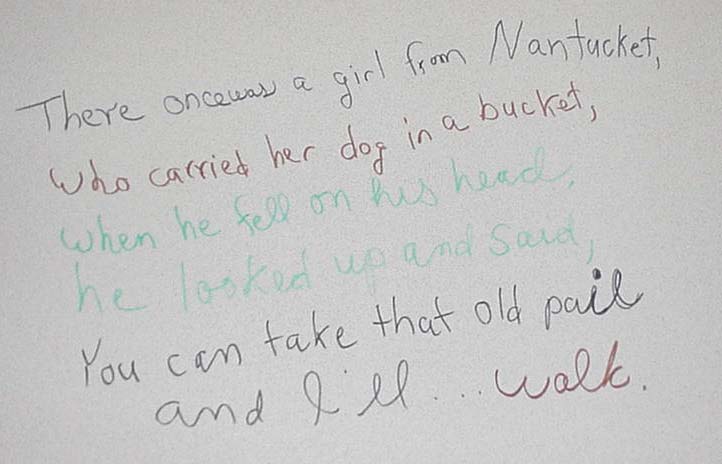 There once was a girl from Nantucket,
who carried her dog in a bucket,
when he fell on his head,
he looked up and said,
You can take that old pail
and I'll... walk.